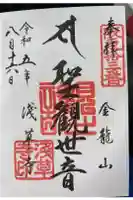 奉拝
金龍山
聖観世音
浅草寺
令和五年
八月十六日